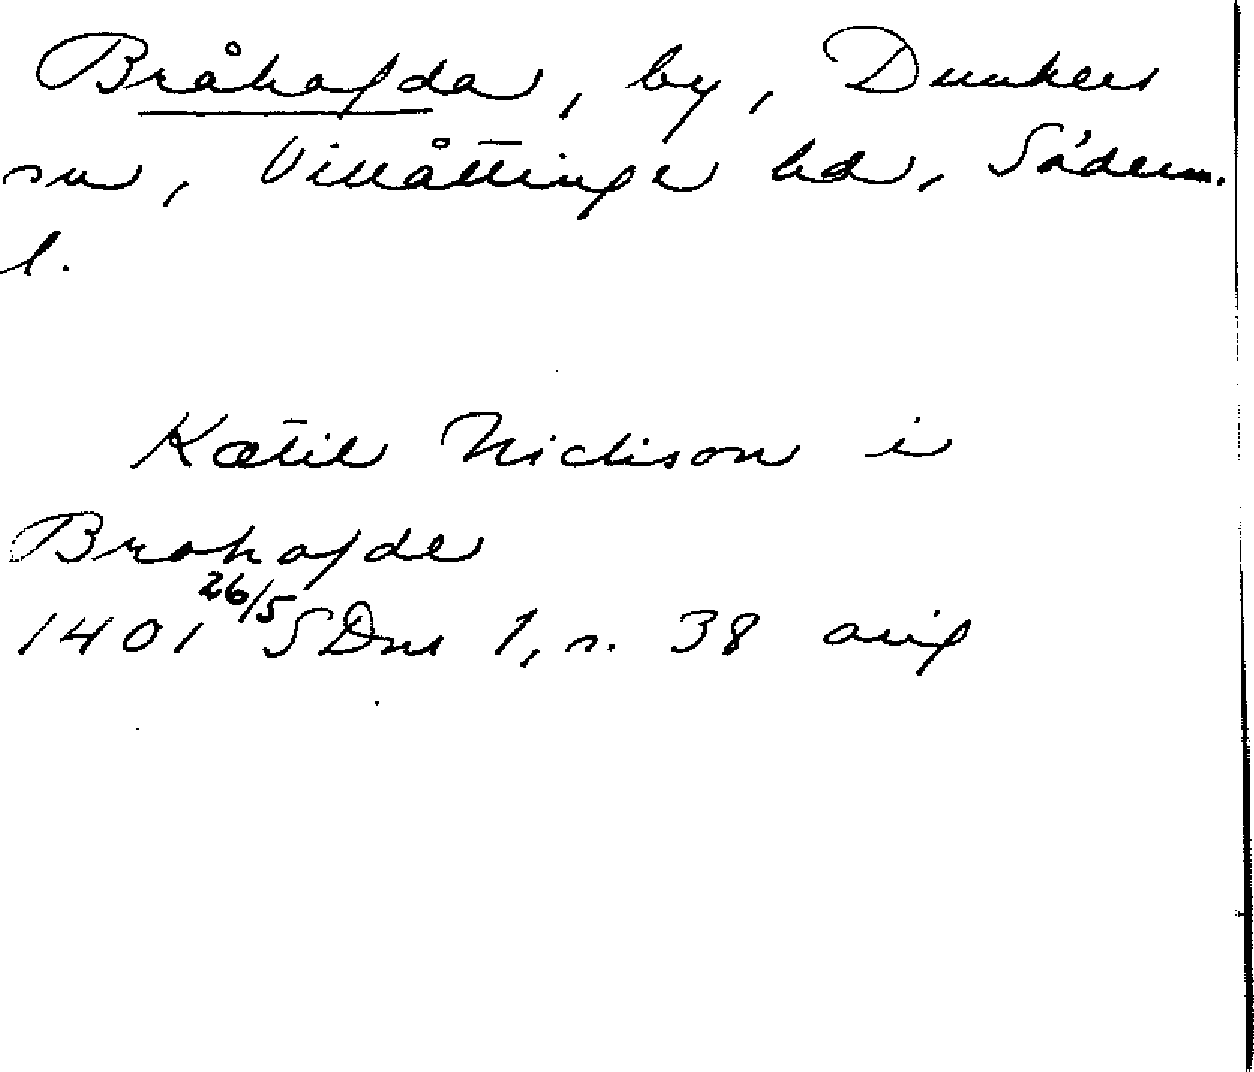 Bråhofda, by, Dunkers
sn, Villåttinge hd, Söderm.
l.
Kætil Niclisson i
Brohofde
1401 26/5 SDns 1, s. 38 orig